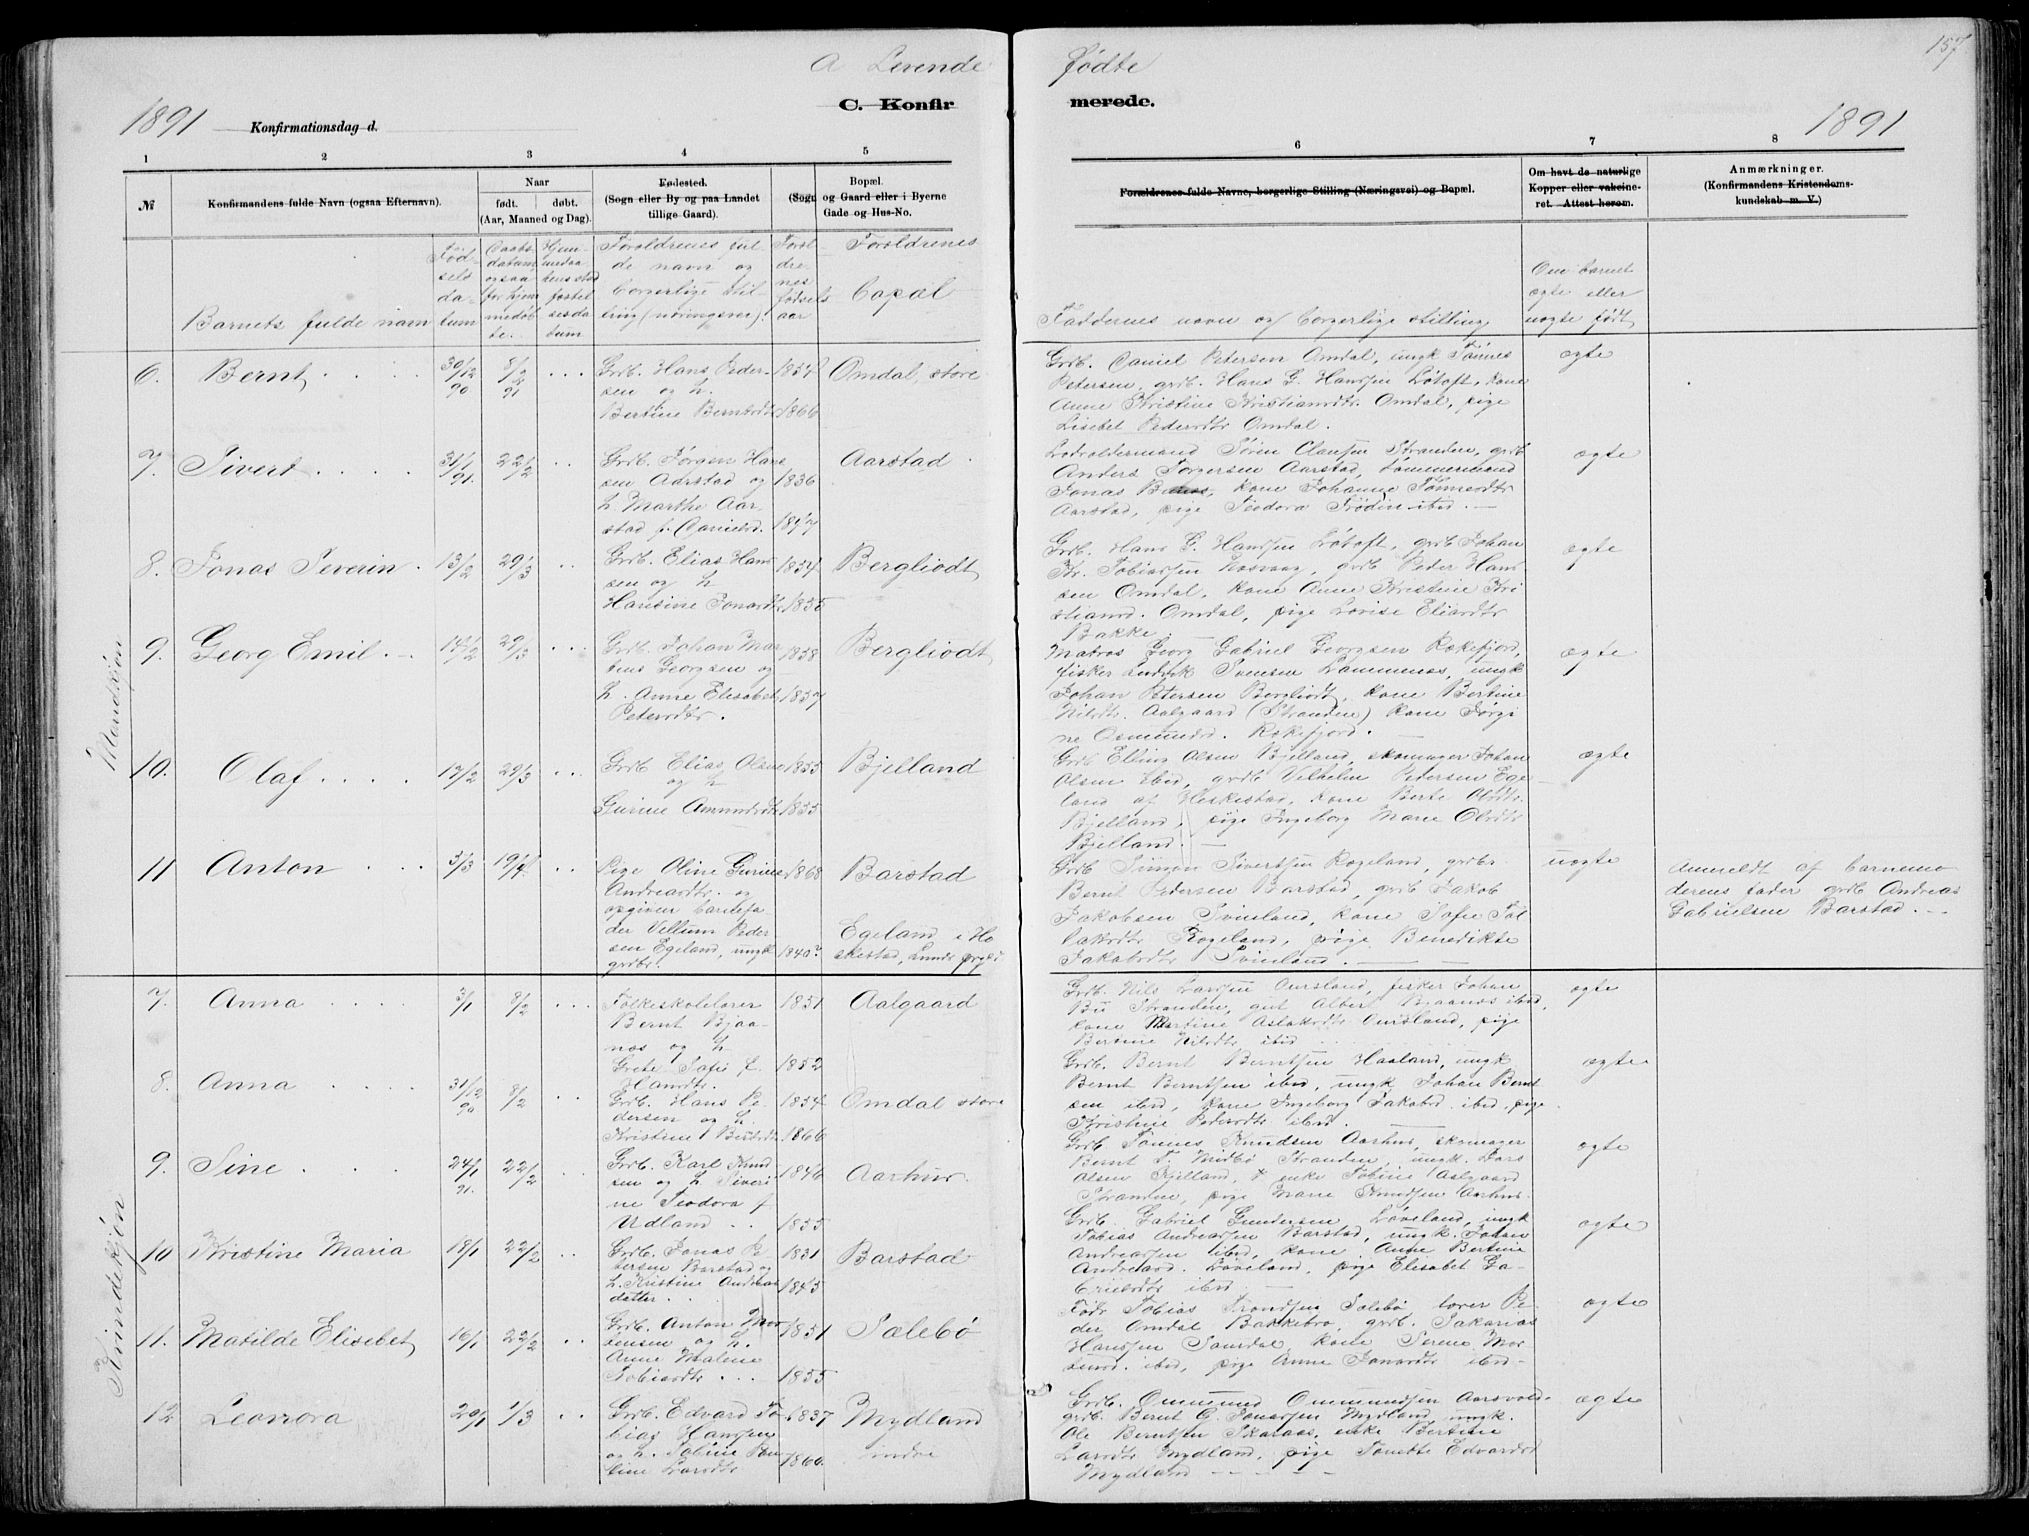 157
A Levende Fødte
C. Konfir merede.
1891 Konfirmationsdag d. 1891
1 2 3 4 5 6 7 8
№
Konfirmandens fulde Navn (ogsaa Efternavn).
Naar
født. døbt.
(Aar, Maaned og Dag).
Fødested.
(Sogn eller By og paa Landet
tillige Gaard).
Bopæl.
(Sogn og Gaard eller i Byerne
Gade og Hus-No.
Forældrenes fulde Navne, borgerlige Stilling (Næringsvei) og Bopæl.
Om havt de naturlige
Kopper eller vakcine-
ret. Attest herom.
Anmærkninger.
(Konfirmandens Kristendoms-
kundskab m. V.)
Barnets fulde navn
Fød-
sels
da-
tum
Daabs
datum,
ogsaa
for hjem
medøb
te.
Hjem-
medaa
bens stad
festel
sesda
tum
Foreldrenes ful-
de navn og
borgerlige stil-
ling (næringsvei).
Forel-
dre-
nes
fødsels
aar
Foreldrenes
bopæl
Faddernes navn og borgerlige stilling
Om barnet
egte eller
uegte født
Mandkjøn
6. Bernt 30/12 90 8/2 91
Grdb. Hans Peder-
sen og h.
Bertine Berntsdtr
1854 1866
Omdal, store
Grdb. Daniel Petersen Omdal, ungk Tønnes
Petersen, grdb. Hans G. Hansen Løtoft, kone
Anne Kristine Kristiansdtr. Omdal, pige
Lisebet Pedersdtr Omdal.
egte
7. Sivert 31/1 91. 22/2
Grdb. Jørgen Han
sen Aarstad og
h. Marthe Aar
stad f. Danielsd.
1836 1847
Aarstad
Lodsoldermand Søren Clausen Stranden, grdb
Anders Torgersen Aarstad, tømmermand
Jonas kone Johanne Tønnesdtr
Aarstad, pige Teodora Frødin ibid.
egte
8. Jonas Severin 13/2 29/3
Grdb. Elias Han
sen og h
Hansine Jonasdtr
1854 1855
Bergliodt
Grdb. Hans G. Hansen Løtoft, grdb Johan
Kr. Tobiassen Rosvaag, grdb Peder Han
sen Omdal, kone Anne Kristine Kri
stiansd. Omdal, pige Lovise Eliasdtr
Bakke
egte
9. Georg Emil 14/2 29/3
Grdb. Johan Mar
tens Georgsen og
h. Anne Elisabet
Petersdtr.
1858 1857
Bergliodt
Matros Georg Gabriel Georgsen Rekefjord,
fisker Svensen ungk
Johan Petersen Bergliodt, kone Bertine
Nilsdtr. Aalgaard (Stranden) kone Jørgi
ne Osmundsd. Rekefjord.
egte
10. Olaf 17/2 29/3
Grdb Elias Olsen
og h
Gurine Amundsdtr
1855 1855
Bjelland
Grdb Elling Olsen Bjelland, skomager Johan
Olsen ibid, grdb Vilhelm Pedersen Ege
land af Heskestad, kone Berte Olsdtr.
Bjelland, pige Ingeborg Marie Olsdtr
Bjelland.
egte
11 Anton 3/3 19/4
Pige Oline Gurine
Andreasdtr. og
opgiven barnefa-
der Vellum Peder
sen Egeland, ungk
grdbr.
1868 1840?
Barstad
Egeland i He
skestad, Lunds prgjd
Grdb Simon Sivertsen Rægeland, grdbr
Bernt Pedersen Barstad, grdb Jakob
Jakobsen Svinland, kone Sofie Tol
laksdtr Rægeland, pige Benedikte
Jakobsdtr Svinland.
uegte
Anmeldt af barnemo
derens fader grdb Andreas
Gabrielsen Barstad.
Kvindekjøn
7. Anna 3/1 8/2
Folkeskolelærer
Bernt Bjaa-
nes og h.
Grete Sofie f.
Hansdtr.
1851 1852
Aalgaard
Grdb. Nils Larsen Oursland, fisker Johan
Bu Stranden, gut Albert Bjaanes ibid,
kone Martine Aslaksdtr Oursland, pige
Bertine Nilsdtr ibid
egte
8. Anna 31/12 90 8/2
Grdb. Hans Pe-
dersen og h.
Kristine Berntsdtr
1854 1866
Omdal store
Grdb. Bernt Berntsen Haaland, ungk
Bernt Berntsen ibid, ungk Johan Bernt
sen ibid, kone Ingeborg Jakobsd. ibid. pige
Kristine Pedersdtr ibid.
egte
9. Sine 24/1 91. 22/2
Grdb. Karl Knud
sen og h. Severi
ne Teodora f.
Udland
1846 1855
Aarhus.
Grdb. Tønnes Knudsen Aarhus, skomager
Bernt T. Midbø Stranden, ungk. Lars
Olsen Bjelland, enke Tobine Aalgaard
Stranden, pige Marie Knudsen Aarhus.
egte
10 Kristine Maria 18/1 22/2
Grdb. Jonas Pe
tersen Barstad og
h. Kristine Andreas
datter
1831 1845
Barstad
Grdb. Gabriel Gundersen Løveland, ungk
Tobias Andreassen Barstad, ungk. Johan
Andreassen ibid, kone Anne Bertine
Andreasd. Løveland, pige Elisabet Ga-
brielsdtr ibid
egte
11. Matilde Elisebet 16/1 22/2
Grdb. Anton Mor
tensen og h.
Anne Malene
Tobiasdtr
1851 1855
Sælebø
Føder Tobias Trondsen Sælebø, lærer Pe-
der Omdal Bakkebø, grdb. Sakarias
Hanssen Saurdal, kone Serene Mor
tensd. ibid, pige Anne Jonasdtr ibid
egte
12 Leonora 29/1 1/3
Grdb. Edvard To-
bias Hansen
og h. Taline Pau
line Larsdtr
1837 1860
Mydland
indre
Grdb. Ommund Ommundsen Aarsvold
grdb. Bernt G. Jonassen Mydland, ungk.
Ole Berntsen Skaraas, enke Bertine
Larsdtr Mydland, pige Tonette Edvardsd
Mydland
egte